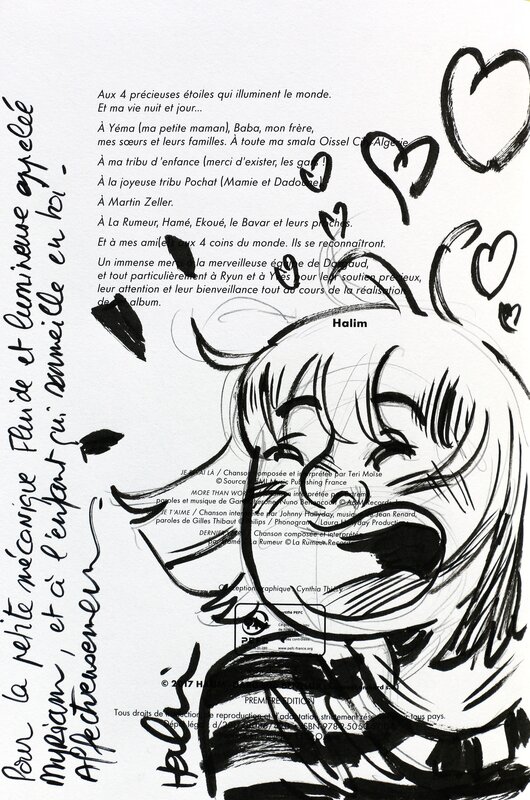 Aux 4 précieuses étoiles qui illuminent le monde.
Et ma vie nuit et jour...
À Yéma (ma petite maman), Baba, mon frère,
mes sœurs et leurs familles. À toute ma smala Oissel Algérie
À ma tribu d'enfance (merci d'exister, les gars
À la joyeuse tribu Pochat (Mamie et Dadoune)
À Martin Zeller.
À La Rumeur, Hamé, Ekoué, le Bavar et leurs proches.
Et à mes ami(e)s aux 4 coins du monde. Ils se reconnaîtront.
Un immense merci à la merveilleuse équipe de Dargaud,
et tout particulièrement à Ryun et à Yves pour leur soutien précieux,
leur attention et leur bienveillance tout au cours de la réalisation
de album.
Halim
JE LÀ / Chanson composée et interprétée par Teri Moïse
© Source EMI Music Publishing France
MORE THAN WOR interprétée par
paroles et musique de Gary Nuno Bettencourt © A&M Records
JE T'AIME / Chanson interprétée par Johnny Hallyday, musique Jean Renard,
paroles de Gilles Thibaut Philips / Phonogram Laura Hallyday Production
DERNIER Chanson composée et interprétée
par La Rumeur © La Rumeur Records
Conception graphique : Cynthia Thiéry
PEFC
www.pefc-france.org
© 2017 HALIM
PREMIÈRE ÉDITION
Tous droits de traduction, de reproduction et d'adaptation strictement réservés pour tous pays.
Dépôt légal : ISBN 978 5050
Pour la petite mécanique Fluide et lumineuse appelée
Myriam, et à l'enfant qui sommeille en toi -
Affectueusement
Halim